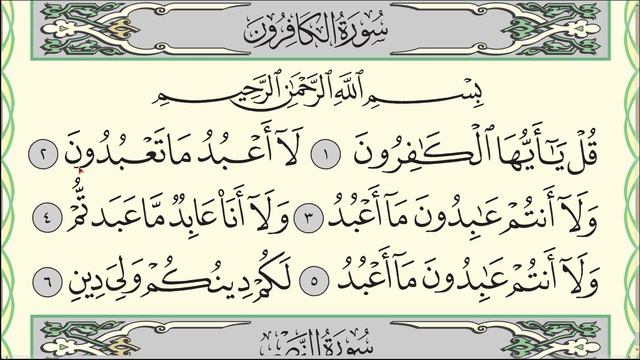 سُورَةُ الكَافِرُونَ
بِسْمِ اللَّهِ الرَّحْمَٰنِ الرَّحِيمِ
قُلْ يَٰٓأَيُّهَا ٱلْكَٰفِرُونَ ١ لَآ أَعْبُدُ مَا تَعْبُدُونَ ٢
وَلَآ أَنتُمْ عَٰبِدُونَ مَآ أَعْبُدُ ٣ وَلَآ أَنَا۠ عَابِدٌ مَّا عَبَدتُّمْ ٤
وَلَآ أَنتُمْ عَٰبِدُونَ مَآ أَعْبُدُ ٥ لَكُمْ دِينُكُمْ وَلِىَ دِينِ ٦
سُورَةُ النَّصْرِ